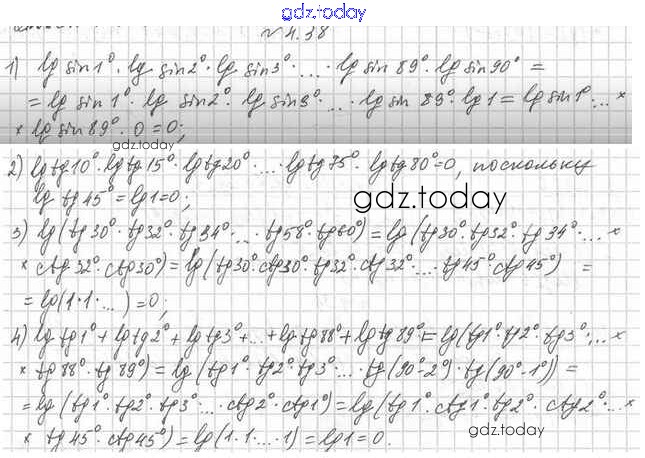 gdz.today
№ 4.38
1) lg sin1° · lg sin2° · lg sin3° · ... · lg sin 89° · lg sin90° =
= lg sin1° · lg sin2° · lg sin3° · ... · lg sin 89° · lg 1 = lg sin1° · ... ×
× lg sin89° · 0 = 0;
gdz.today
2) lg tg10° · lg tg15° · lg tg20° · ... · lg tg75° · lg tg80° = 0, поскольку
lg tg 45° = lg1 = 0;
gdz.today
3) lg(tg30° · tg32° · tg34° · ... · tg58° · tg60°) = lg(tg30° · tg32° · tg34° · ... ×
× ctg32° · ctg30°) = lg(tg30° · ctg30° · tg32° · ctg32° · ... · tg45° ctg45°) =
= lg(1 · 1 · ...) = 0;
4) lg tg1° + lg tg2° + lg tg3° + ... + lg tg88° + lg tg89° = lg(tg1° · tg2° · tg3° · ... ×
× tg88° · tg89°) = lg(tg1° · tg2° · tg3° · ... · tg(90°-2°) · tg(90°-1°)) =
= lg(tg1° · tg2° · tg3° · ... · ctg2° · ctg1°) = lg(tg1° · ctg1° · tg2° · ctg2° · ... ×
× tg45° · ctg45°) = lg(1 · 1 · ... · 1) = lg1 = 0.
gdz.today